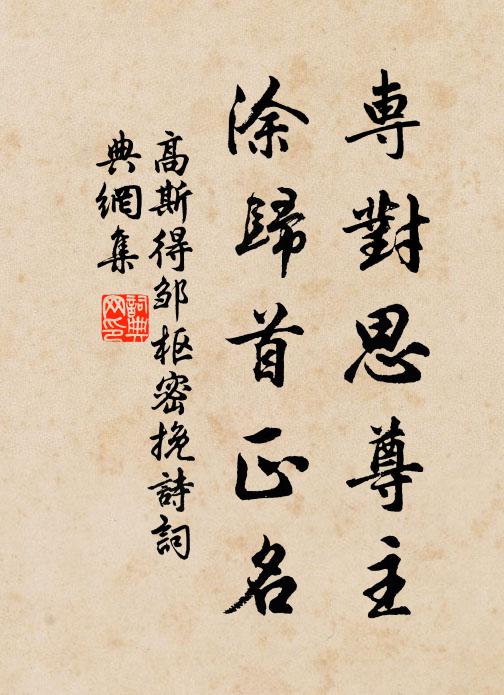 專對思尊主
涂歸首正名
高斯得邹枢密挽詩詞
典網集
詞典
网印